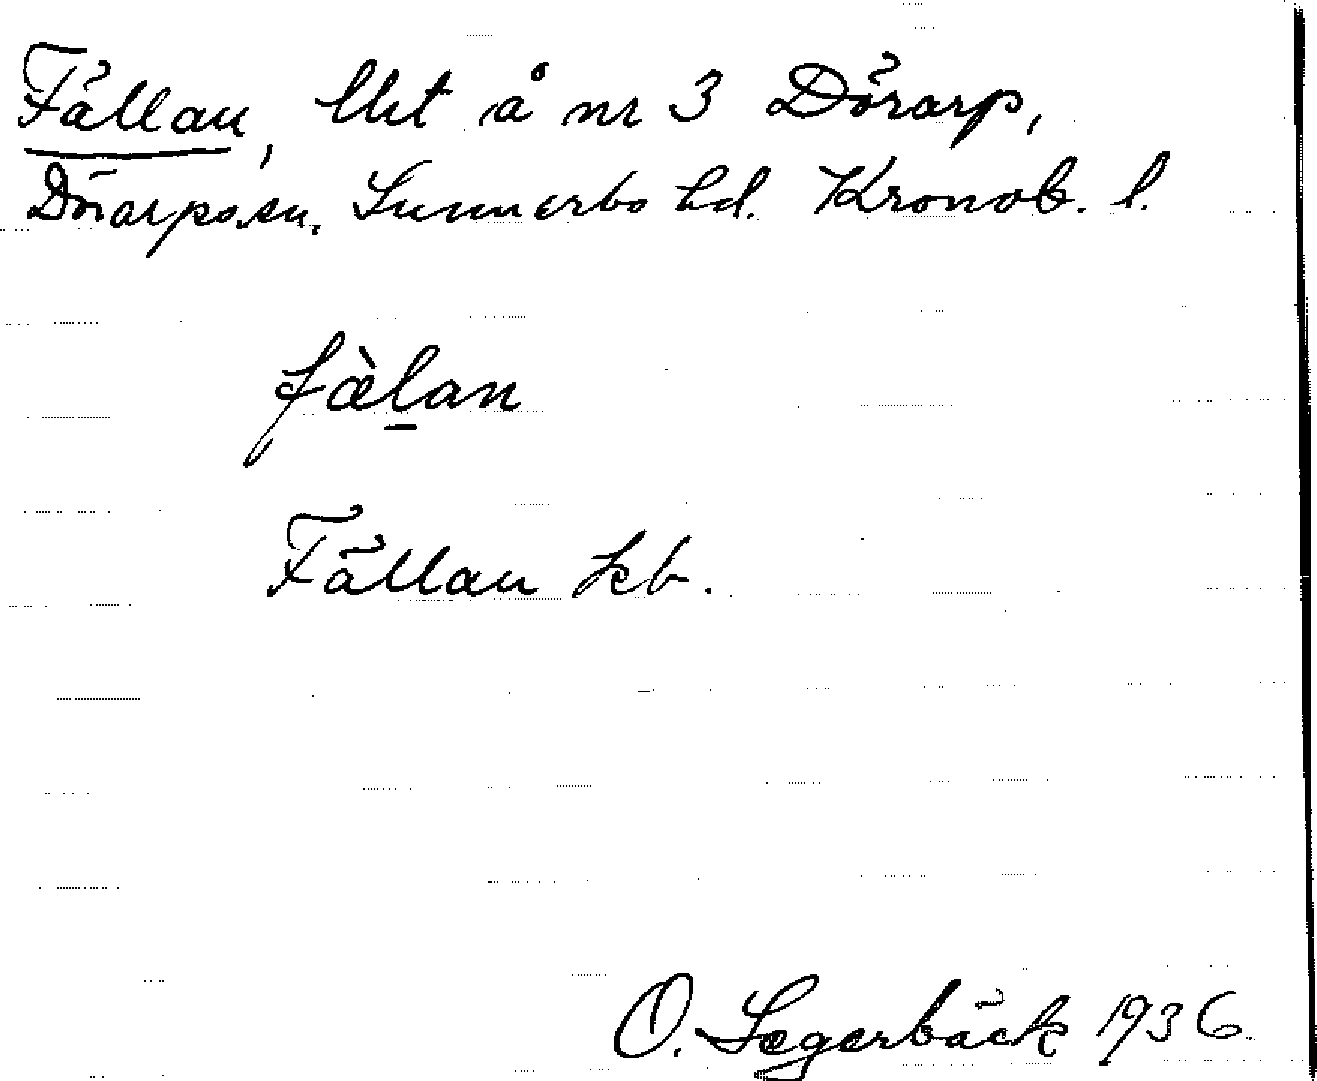 Fällan, lht å nr 3 Dörarp,
Dörarps sn. Sunnerbo hd. Kronob. l.
fæ̀l̠an
Fällan kb.
O. Segerbäck 1936.